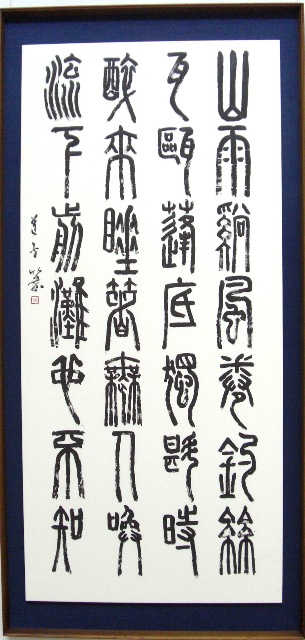 山雨谿風卷釣絲
瓦甌蓬底獨斟時
醉來睡著無人喚
流下前灘也不知